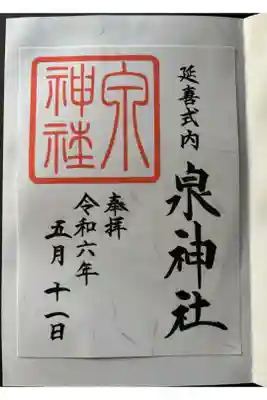 延喜式内
泉神社
奉拝
令和六年
五月十一日
泉神社